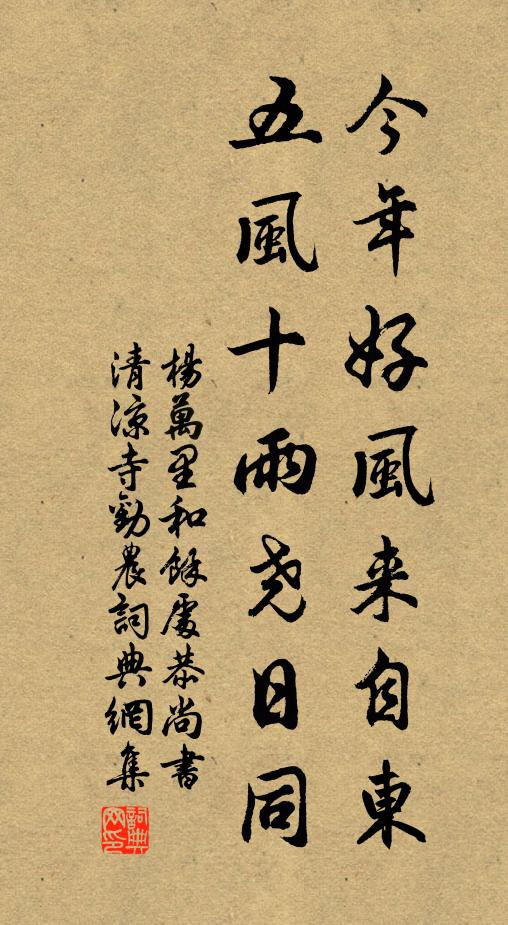 今年好風来自東
五風十雨尧日同
楊萬里和餘處恭尚書
清凉寺勸農詞典網集
詞典网印